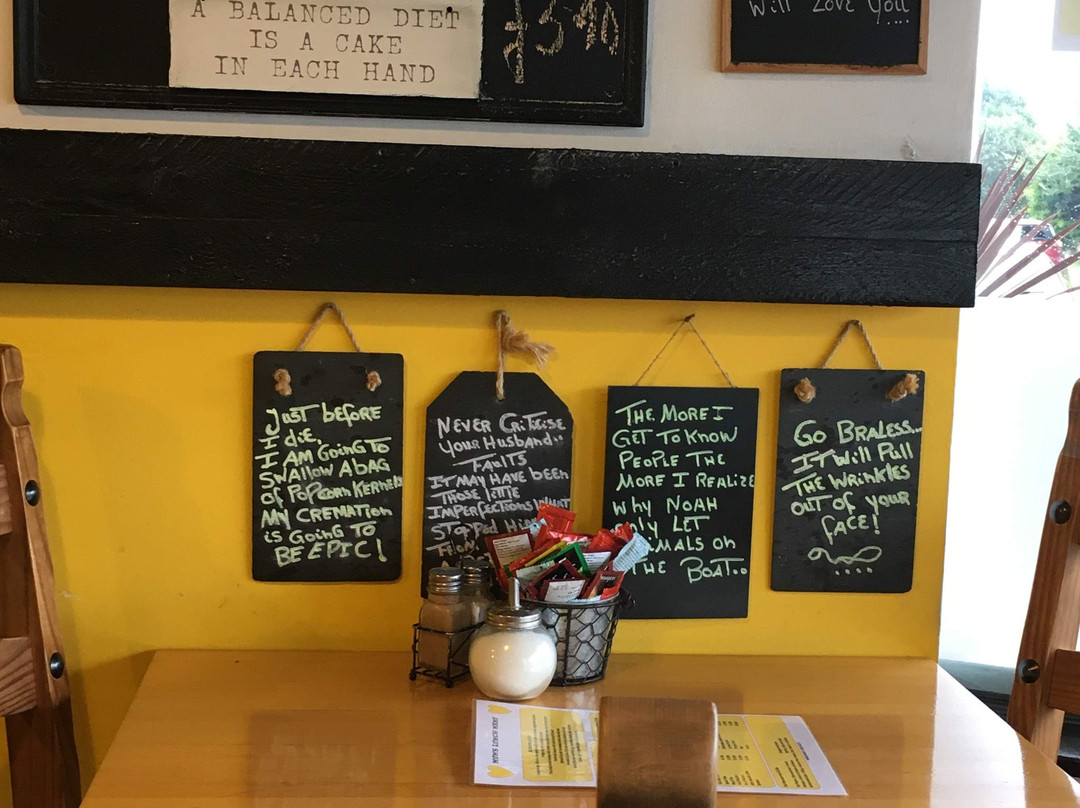 A BALANCED DIET
IS A CAKE
IN EACH HAND
Will Love You....
Just before
I die,
I AM GoinG TO
SWAllow A bAG
of PopCorn KerNels
MY CREMATION
is GoinG To
BE EPIC!
Never Criticise
your Husband..
FAulTS
IT MAY HAVE beeN
Those little
IMPERFECTIONS WHAT
Stopped
The More I
Get To know
People The
More I Realize
why Noah
only LET
on
The Boat..
Go Braless...
IT Will Pull
The Wrinkles
out of your
face!
MOM'S LUNCH MENU